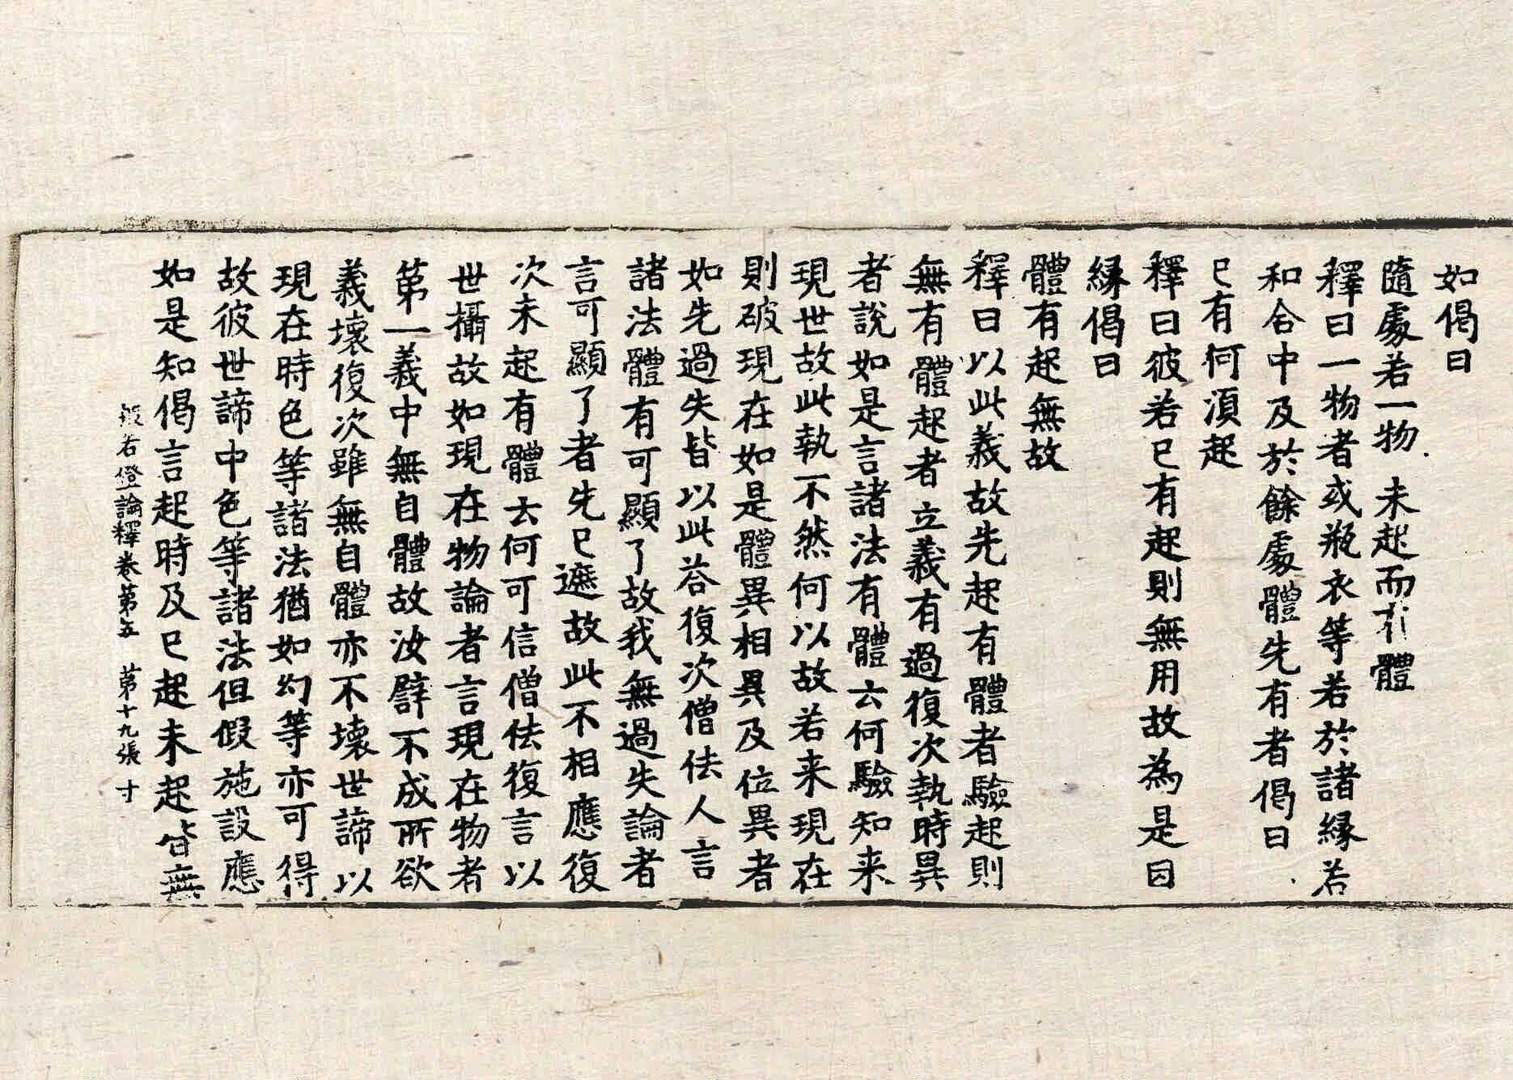 如偈曰
隨處若一物 未起而有體
釋曰一物者或瓶衣等若於諸緣若
和合中及於餘處體先有者偈曰
已有何湏起
釋曰彼若已有起則無用故為是因
緣偈曰
體有起無故
釋曰以此義故先起有體者驗起則
無有體起者立義有過復次執時異
者說如是言諸法有體云何驗知来
現世故此執不然何以故若来現在
則破現在如是體異相異及位異者
如先過失皆以此荅復次僧佉人言
諸法體有可顯了故我無過失論者
言可顯了者先已遮故此不相應復
次未起有體云何可信僧佉復言以
世攝故如現在物論者言現在物者
第一義中無自體故汝譬不成所欲
義壞復次雖無自體亦不壞世諦以
現在時色等諸法猶如幻等亦可得
故彼世諦中色等諸法但假施設應
如是知偈言起時及已起未起皆無
般若燈論釋卷第五 第十九張 寸